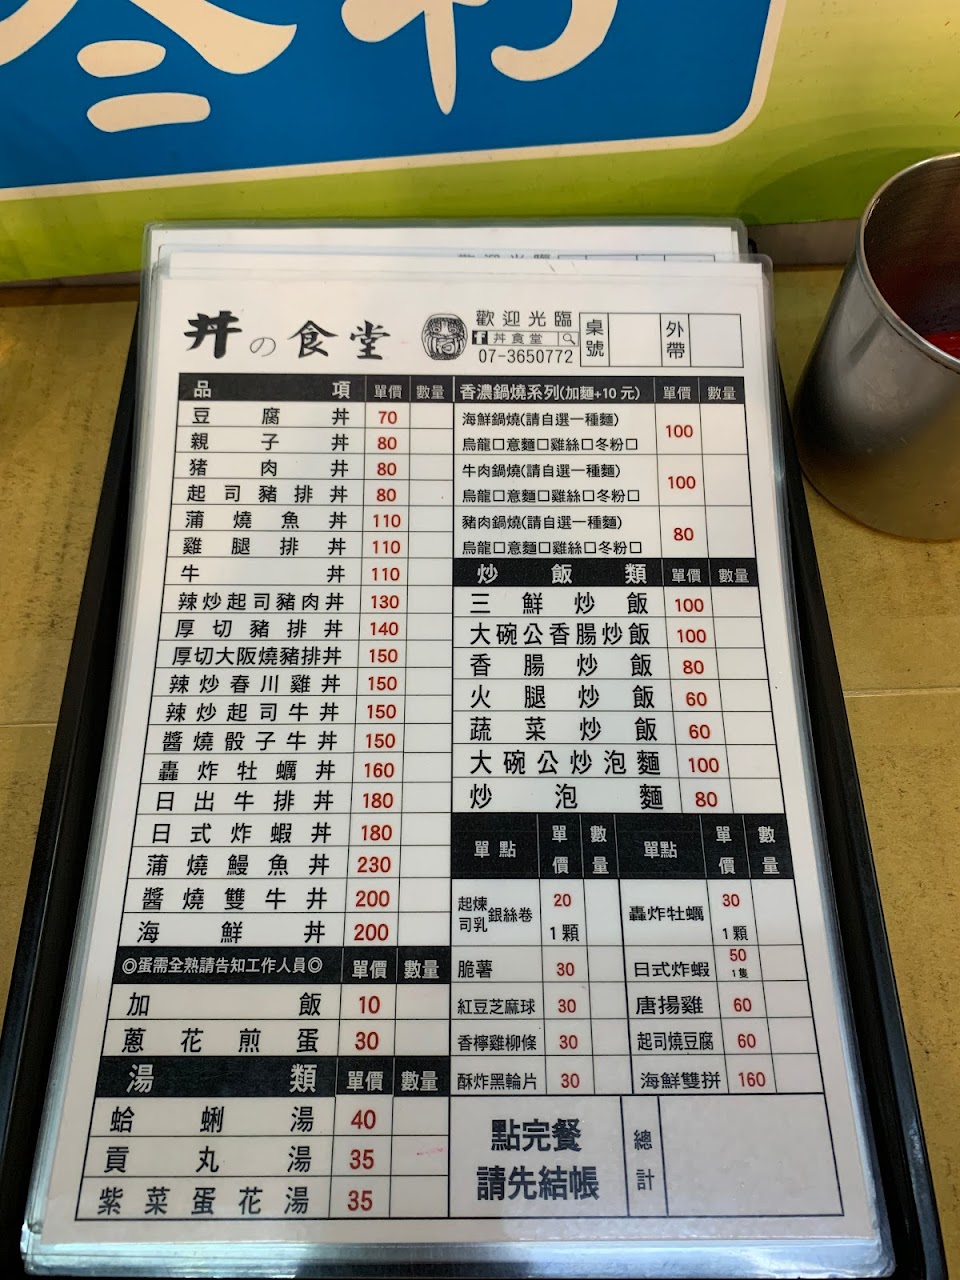 丼の食堂
歡迎光臨
丼食堂
07-3650772
桌號
外帶
品項 單價 數量
豆腐丼 70
親子丼 80
豬肉丼 80
起司豬排丼 80
蒲燒魚丼 110
雞腿排丼 110
牛丼 110
辣炒起司豬肉丼 130
厚切豬排丼 140
厚切大阪燒豬排丼 150
辣炒春川雞丼 150
辣炒起司牛丼 150
醬燒骰子牛丼 150
轟炸牡蠣丼 160
日出牛排丼 180
日式炸蝦丼 180
蒲燒鰻魚丼 230
醬燒雙牛丼 200
海鮮丼 200
◎蛋需全熟請告知工作人員◎ 單價 數量
加飯 10
蔥花煎蛋 30
湯類 單價 數量
蛤蜊湯 40
貢丸湯 35
紫菜蛋花湯 35
香濃鍋燒系列(加麵+10元) 單價 數量
海鮮鍋燒(請自選一種麵) 100
烏龍□意麵□雞絲□冬粉□
牛肉鍋燒(請自選一種麵) 100
烏龍□意麵□雞絲□冬粉□
豬肉鍋燒(請自選一種麵) 80
烏龍□意麵□雞絲□冬粉□
炒飯類 單價 數量
三鮮炒飯 100
大碗公香腸炒飯 100
香腸炒飯 80
火腿炒飯 60
蔬菜炒飯 60
大碗公炒泡麵 100
炒泡麵 80
單點 單價 數量 單點 單價 數量
起司煉乳銀絲卷 20 1顆 轟炸牡蠣 30 1顆
脆薯 30 日式炸蝦 50 1隻
紅豆芝麻球 30 唐揚雞 60
香檸雞柳條 30 起司燒豆腐 60
酥炸黑輪片 30 海鮮雙拼 160
點完餐
請先結帳
總計